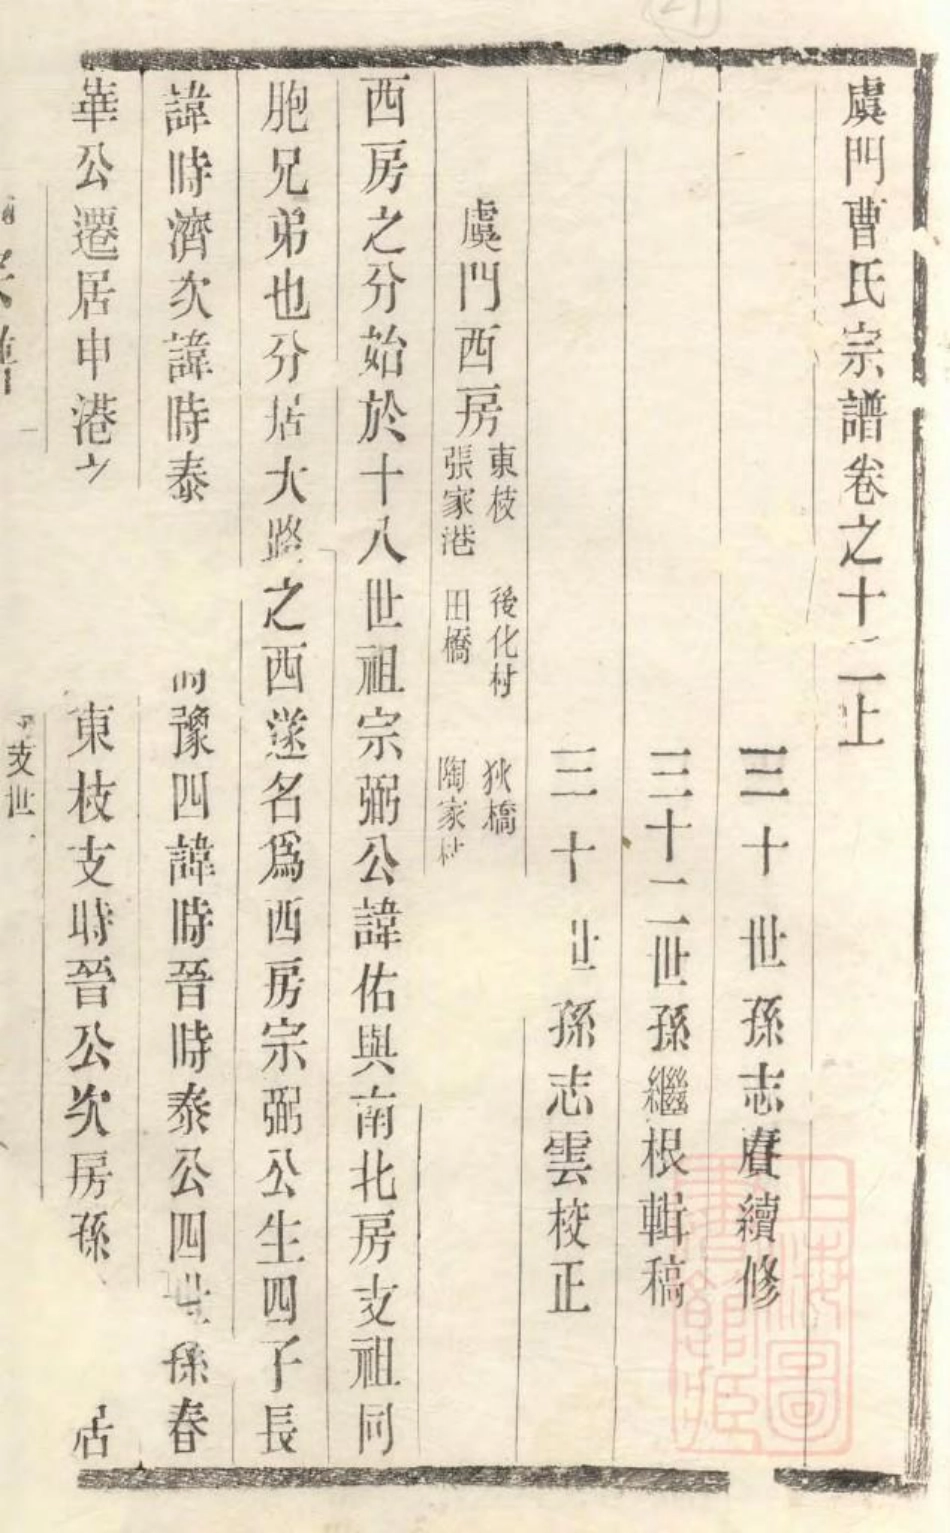 虞門曹氏宗譜卷之十二上
三十世孫志賡續修
三十二世孫繼根輯稿
三十世孫志雲校正
虞門西房
東枝 後化村 狄橋
張家港 田橋 陶家村
西房之分始於十八世祖宗弼公諱佑與南北房支祖同
胞兄弟也分居大路之西遂名爲西房宗弼公生四子長
諱時濟次諱時泰 豫四諱時晉時泰公四世孫春
華公遷居申港 東枝支時晉公次房孫 居
支世